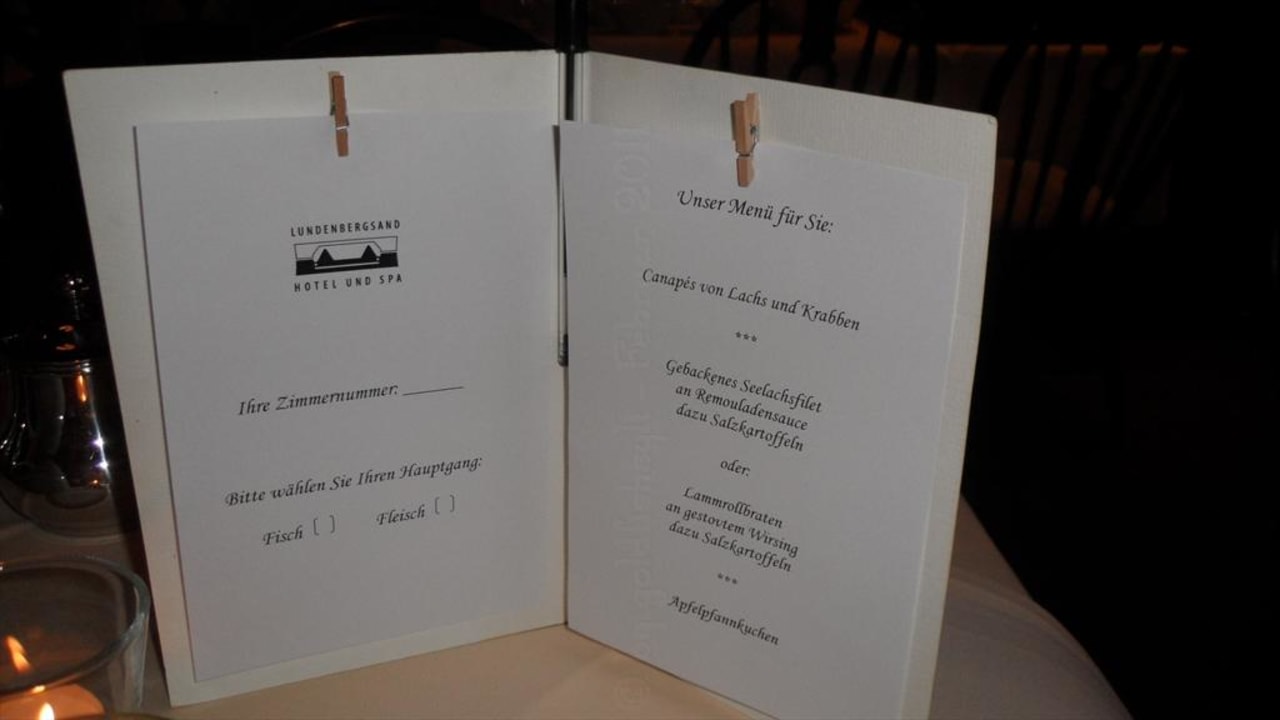 LUNDENBERGSAND
HOTEL UND SPA
Ihre Zimmernummer: ______
Bitte wählen Sie Ihren Hauptgang:
Fisch [ ] Fleisch [ ]
Unser Menü für Sie:
Canapés von Lachs und Krabben
***
Gebackenes Seelachsfilet
an Remouladensauce
dazu Salzkartoffeln
oder:
Lammrollbraten
an gestovtem Wirsing
dazu Salzkartoffeln
***
Apfelpfannkuchen